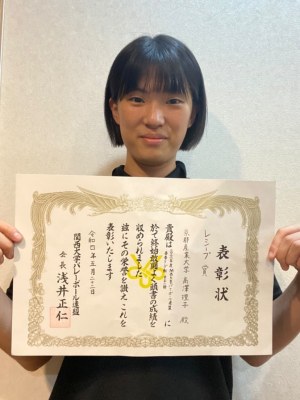 表彰状
レシーブ賞
京都産業大学 高澤理子 殿
貴殿は
に
於て終始敢闘され頭書の成績を
収められました
茲にその栄誉を讃えこれを
表彰いたします
令和四年五月二十二日
関西大学バレーボール連盟
会長 浅井正仁